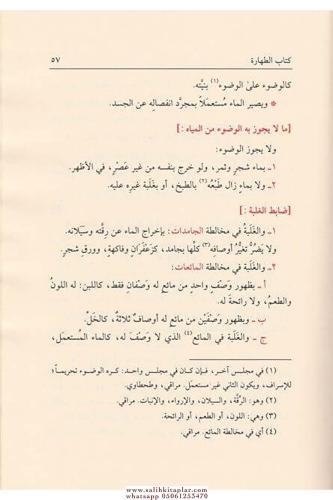 كتاب الطهارة ٥٧
كالوضوء على الوضوء(١) بنيَّته.
* ويصير الماء مُستعمَلاً بمجرَّد انفصالِه عن الجسد.
[ما لا يجوز به الوضوء من المياه :]
ولا يجوز الوضوء:
١ـ بماء شجرٍ وثمر، ولو خرج بنفسه من غير عَصْرٍ، في الأظهر.
٢ـ ولا بماءٍ زال طَبْعُه(٢) بالطبخ، أو بغَلَبة غيرِه عليه.
[ضابط الغلبة :]
١ـ والغَلَبةُ في مخالطة الجامدات: بإخراج الماء عن رِقَّته وسَيَلانه.
ولا يَضُرُّ تغيُّر أوصافِه(٣) كلِّها بجامد، كزَعْفَرانٍ وفاكهةٍ، وورقِ شجرٍ.
٢ـ والغَلَبةُ في مخالطة المائعات:
أ ـ بظهور وَصْفٍ واحدٍ من مائعٍ له وَصْفان فقط، كاللبن: له اللونُ
والطعمُ، ولا رائحةَ له.
ب ـ وبظهور وَصْفَيْن من مائعٍ له أوصافٌ ثلاثةٌ، كالخَلِّ.
ج ـ والغَلَبةُ في المائع(٤) الذي لا وَصْفَ له، كالماء المُستعمَل،
(١) في مجلس آخر، فإن كان في مجلس واحد: كره الوضوء تحريماً؛
للإسراف، ويكون الثاني غير مستعمل. مراقي، وطحطاوي.
(٢) وهو: الرِّقَّة، والسيلان، والإرواء، والإنبات. مراقي.
(٣) وهي: اللون، أو الطعم، أو الرائحة.
(٤) أي في مخالطة المائع. مراقي.
www.salihkitaplar.com
whatsapp 05061253470